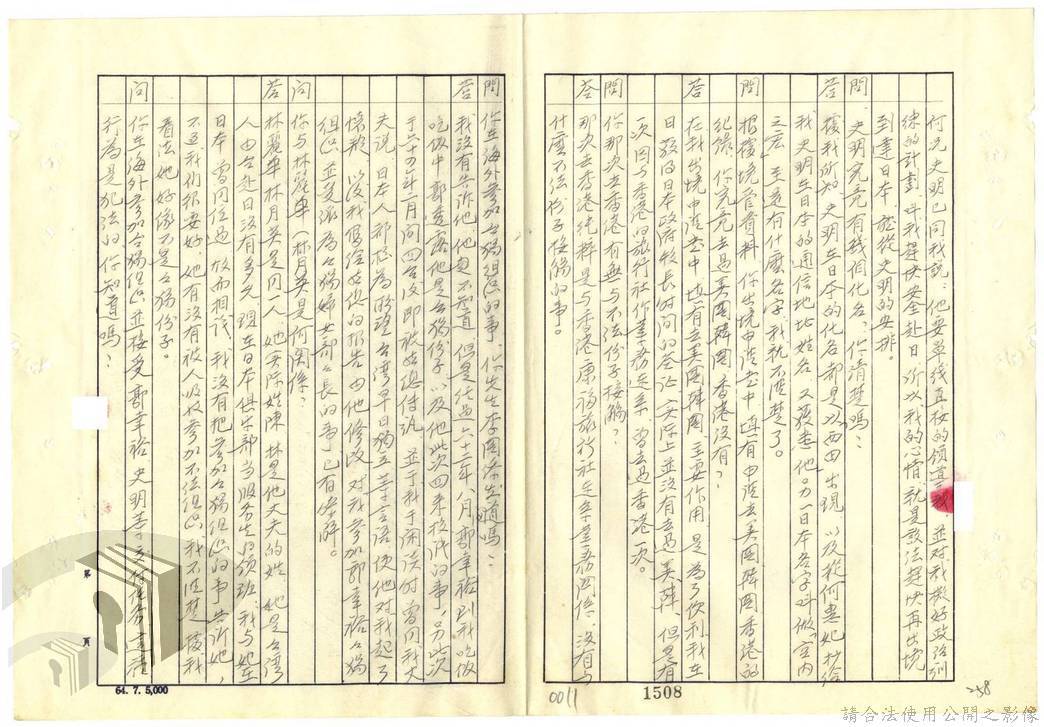 何況史明已同我說：他要單線直接的領導我，並對我做好政治訓
練的計劃，叫我趕快安全赴日，所以我的心情就是設法趕快再出境
到達日本，聽從史明的安排。
問 史明究竟有幾個化名？你清楚嗎？
答 據我所知，史明在日本的化名都是以西田出現，以及從何秀妃抄給
我史明在日本的通信地址姓名，又獲悉他另一日本名字叫做「宮內
之宏」，至還有什麼名字我就不清楚了。
問 根據境管資料，你出境申請書中，填有申請去美國韓國香港的
紀錄，你究竟去過美國韓國香港沒有？
答 在我出境申請書中，填有去美國韓國，主要作用，是為了便利我在
日取得日本政府較長時間的簽證，實際上並沒有去過美、韓，但是有
一次因與香港的旅行社作業務連系，曾去過香港一次。
問 你那次去香港有無與不法份子接觸？
答 那次去香港純粹是與香港康福旅行社是業務關係，沒有与
什麼不法份子接觸的事。
問 你在海外參加台獨組織的事，你先生李國泰知道嗎？
答 我沒有告訴他，他更不知道，但是在過六十二年八月郭幸裕到我吃飯
吃飯中郭透露他是台獨份子，以及他此次回來 的事，另此次
于六十四年一月間回台後即被 總傳訊，並于 閒談時，曾同我丈
夫說，日本人都認為 台灣早日獨立等言語，使他對我起了
懷疑，以後我寫給 的報告由他修改，對我參加郭幸裕台獨
組織，並受派為台獨婦女部部長的為，已有 解。
問 你与林麗華（林月英）是何關係？
答 林麗華林月英是同一人，她實際姓陳，林是他丈夫的姓，她是台灣
人，由台赴日沒有多久，現在日本俱樂部當服務生的領班，我与她在
日本曾同住過，故而相識，我沒有把參加台獨組織的事告訴她，
不過我們很要好，她有沒有被人吸收參加不法組織，我不清楚，據我
看法她好像不是台獨份子。
問 你在海外參加台獨組織並接受郭幸裕史明等 任務，這種
行為是犯法的，你知道嗎？
第 頁
64. 7. 5,000
0011
1508
258
請合法使用公開之影像